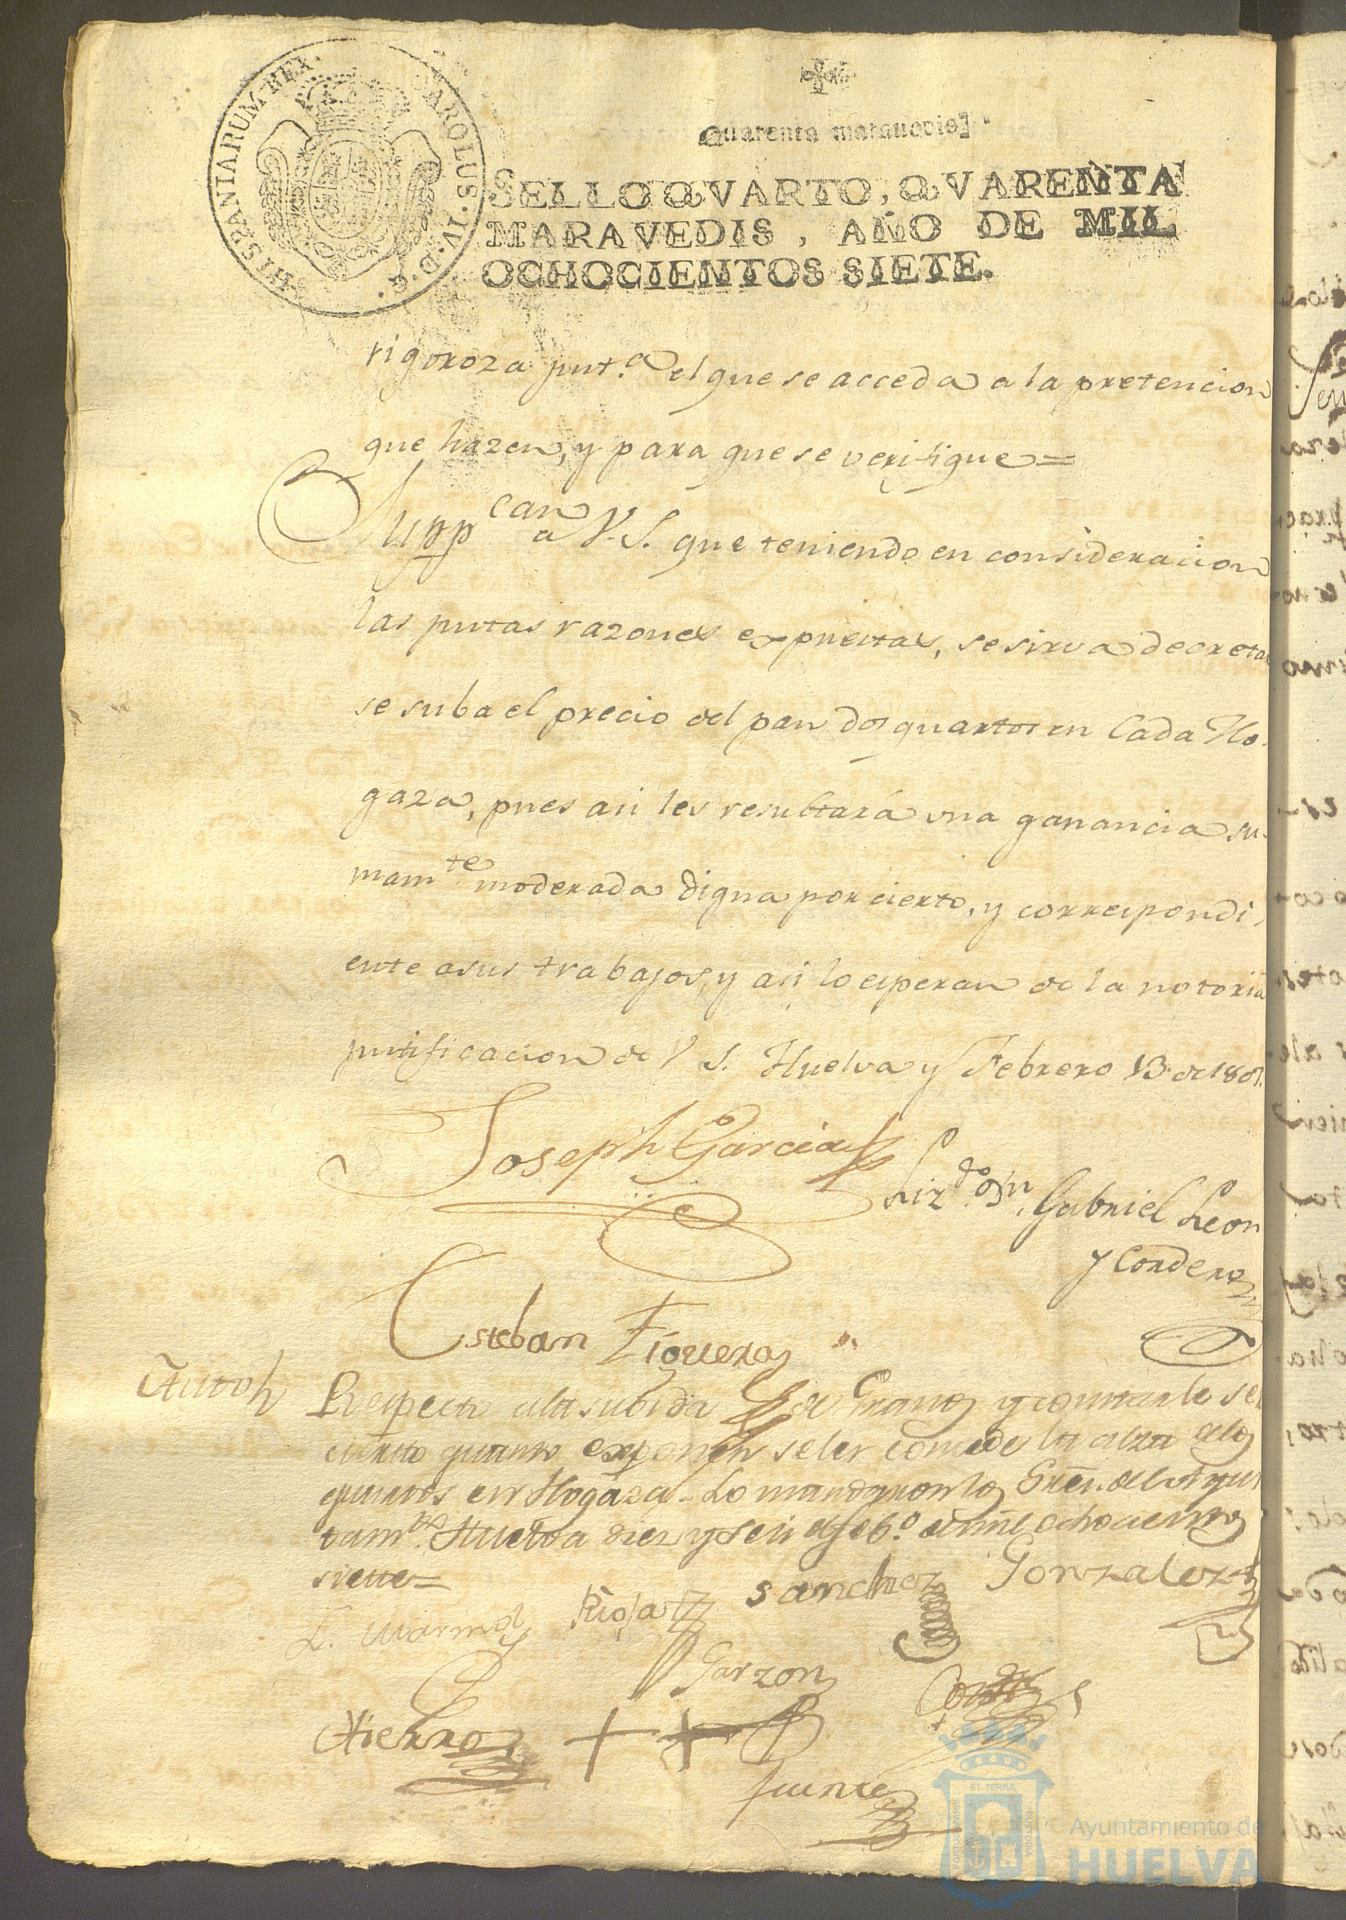 HISPANIARUM REX. CAROLUS·IV·D·G·
Quarenta maravedis
SELLO QVARTO, QVARENTA
MARAVEDIS, AÑO DE MIL
OCHOCIENTOS SIETE.
rigoroza just.a el que se acceda a la pretencion
que hazen, y para que se verifique=
Supp can a V.S. que teniendo en consideracion
las justas razones expuestas, se sirva decretar
se suba el precio del pan dos quartos en Cada Ho-
gaza, pues asi les resultará una ganancia su-
mam.te moderada digna por cierto, y correspondi-
ente a sus trabajos, y asi lo esperan de la notoria
justificacion de V S. Huelva y Febrero 13 de 1807.
Joseph Garcia
Liz.do Dn. Gabriel Leon
y Cordero
Esteban Figueroa
Auto
Respecto a la subida de Granos y constarle ser
cierto quanto exponen se les concede la alza de los
quartos en Hogaza. Lo mandaron los Sres. del Ayun
tam.to Huelva diez y seis de feb.o de mil ochocientos
siette=
Rioja
Sanchez
Gonzalez
Garzon
Hierro
fuente
Ayuntamiento de
HUELVA